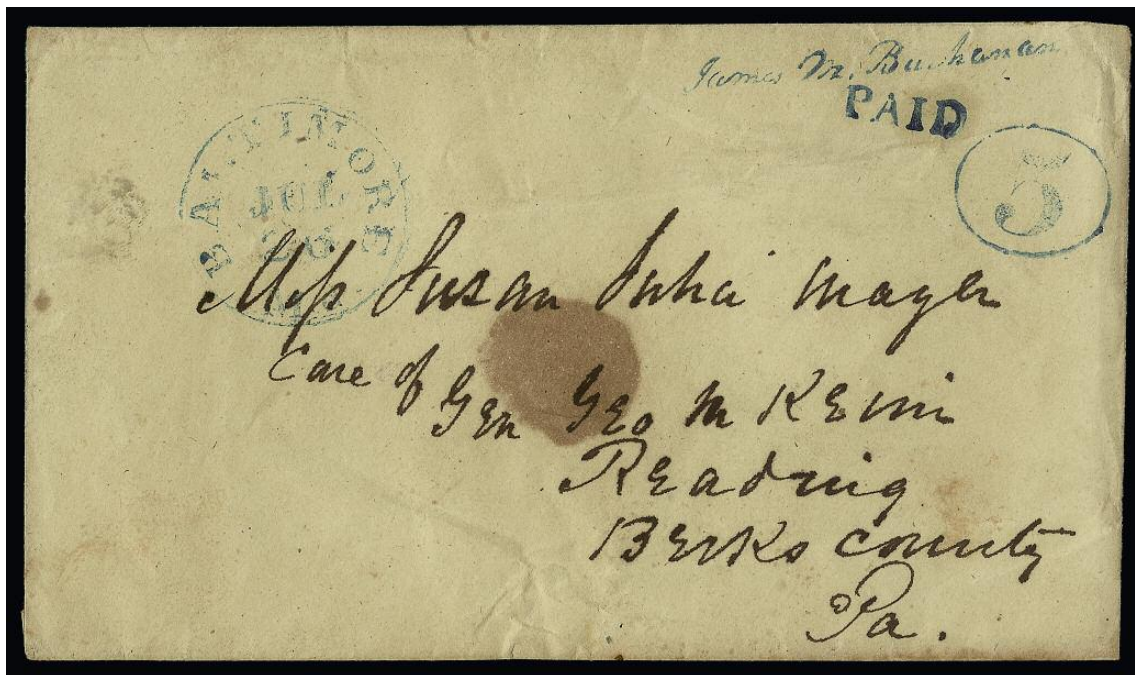 James M. Buchanan.
PAID
5
BALTIMORE
JUL
Md.
Miss Susan Julia Mayer
Care of
Gen Geo M Keim
Reading
Berks County
Pa.